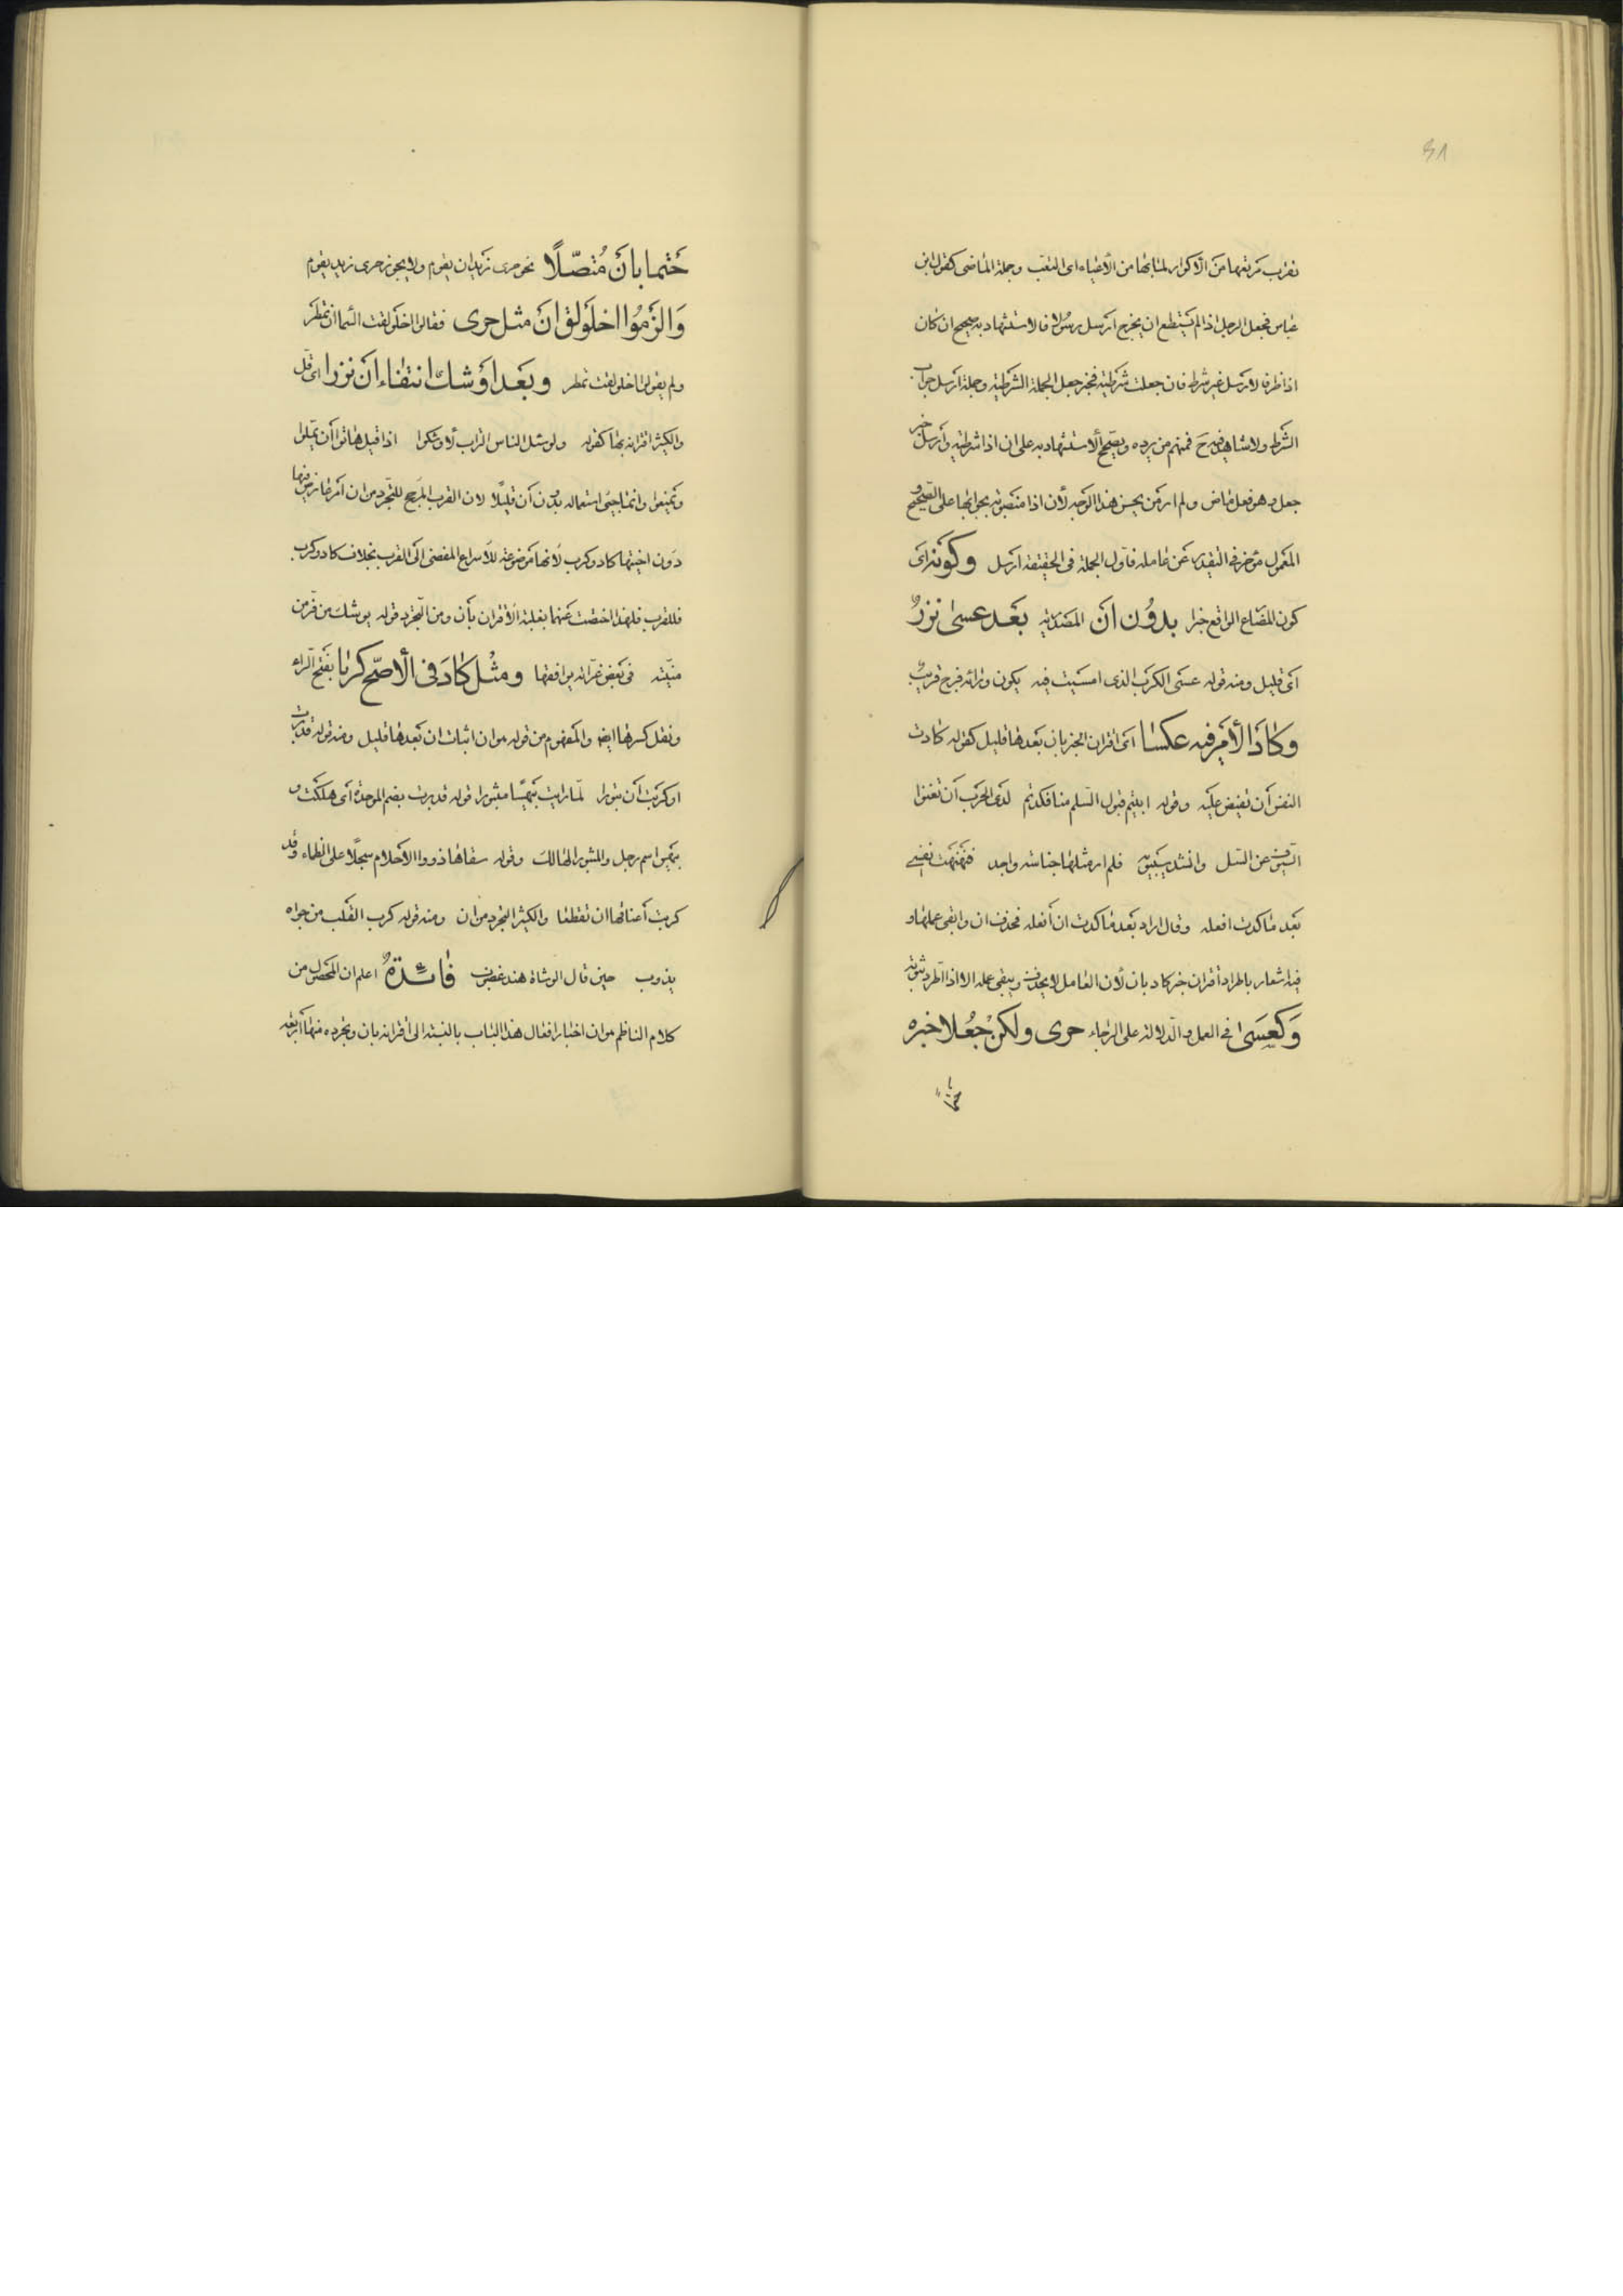 ٤٨
تقرب مرتعها من الاكوار لما بها من الأعياء اى التعب وجملة الماضى كقول ابن
عباس فجعل الرجل اذا لم يستطع ان يخرج ارسل رسولا فالاستشهاد به صحيح ان كان
اذا ظرفا لارسل غير شرط فان جعلت شرطية فخبر جعل الجملة الشرطية وجملة ارسل جواب
الشرط ولا شاهد فيه ح فمنهم من يرده ويصحح الاستشهاد به على ان اذا شرطية وارسل خبر
جعل وهو فعل ماض ولم ار من يحسن هذا الوجه لأن اذا منصوبة بجوابها على الصحيح و
المعمول مؤخر فى التقدير عن عامله فاول الجملة فى الحقيقة ارسل وكونه اى
كون المضارع الواقع خبرا بدون ان المصدرية بعد عسى نزر
اى قليل ومنه قوله عسى الكرب الذى امسيت فيه يكون وراءه فرج قريب
وكاد الأمر فيه عكسا اى اقتران الخبر بان بعدها قليل كقوله كادت
النفس أن تفيض عليه وقوله ابيتم قبول السلم منا فكدتم لدى الحرب أن تغنوا
السيوف عن السل وانشد سيبويه فلم ار مثلها خباسة واحد فنهنهت نفسى
بعد ما كدت افعله وقال اراد بعد ما كدت ان أفعله فحذف ان وابقى عملها و
فيه اشعار باطراد اقتران خبر كاد بان لأن العامل لا يحذف ويبقى عمله الا اذا اطرد ثبوته
وكعسى فى العمل والدلالة على الرجاء حرى ولكن جعلا خبره
حتما
حتما بان متصلا نحو حرى زيد ان يقوم ولا يجوز حرى زيد يقوم
والزموا اخلولق ان مثل حرى فقالوا اخلولقت السما ان تمطر
ولم يقولوا اخلولقت تمطر وبعد اوشك انتفاء ان نزرا اى قل
والكثير اقترانه بها كقوله ولو سئل الناس التراب لاوشكوا اذا قيل هاتوا أن يملوا
ويمنعوا وانما جئ استعماله بدون أن قليلا لان القرب المرجح للتجرد من ان امر عارض فيها
دون اختيها كاد وكرب لانها موضوعة للاسراع المفضى الى القرب بخلاف كاد وكرب
فللقرب فلهذا اختصت عنهما بغلبة الاقتران بأن ومن التجرد قوله يوشك من فر من
منيته فى بعض غراته يوافقها ومثل كاد فى الأصح كربا بفتح الراء
ونقل كسرها ايضا والمفهوم من قوله موان اثبات ان بعدها قليل ومنه قوله قد برت
او كربت أن تبورا لما رايت بيهسا مثبورا قوله قد برت بضم الموحدة اى هلكت و
بيهس اسم رجل والمثبور الهالك وقوله سقاها ذووا الاحلام سجلا على الظماء وقد
كربت أعناقها ان تقطعا والكثير التجرد من ان ومنه قوله كرب القلب من جواه
يذوب حين قال الوشاة هند غضوب فائدة اعلم ان المحصل من
كلام الناظم موان اخبار افعال هذا الباب بالنسبة الى اقترانه بان وتجرده منها أربعة